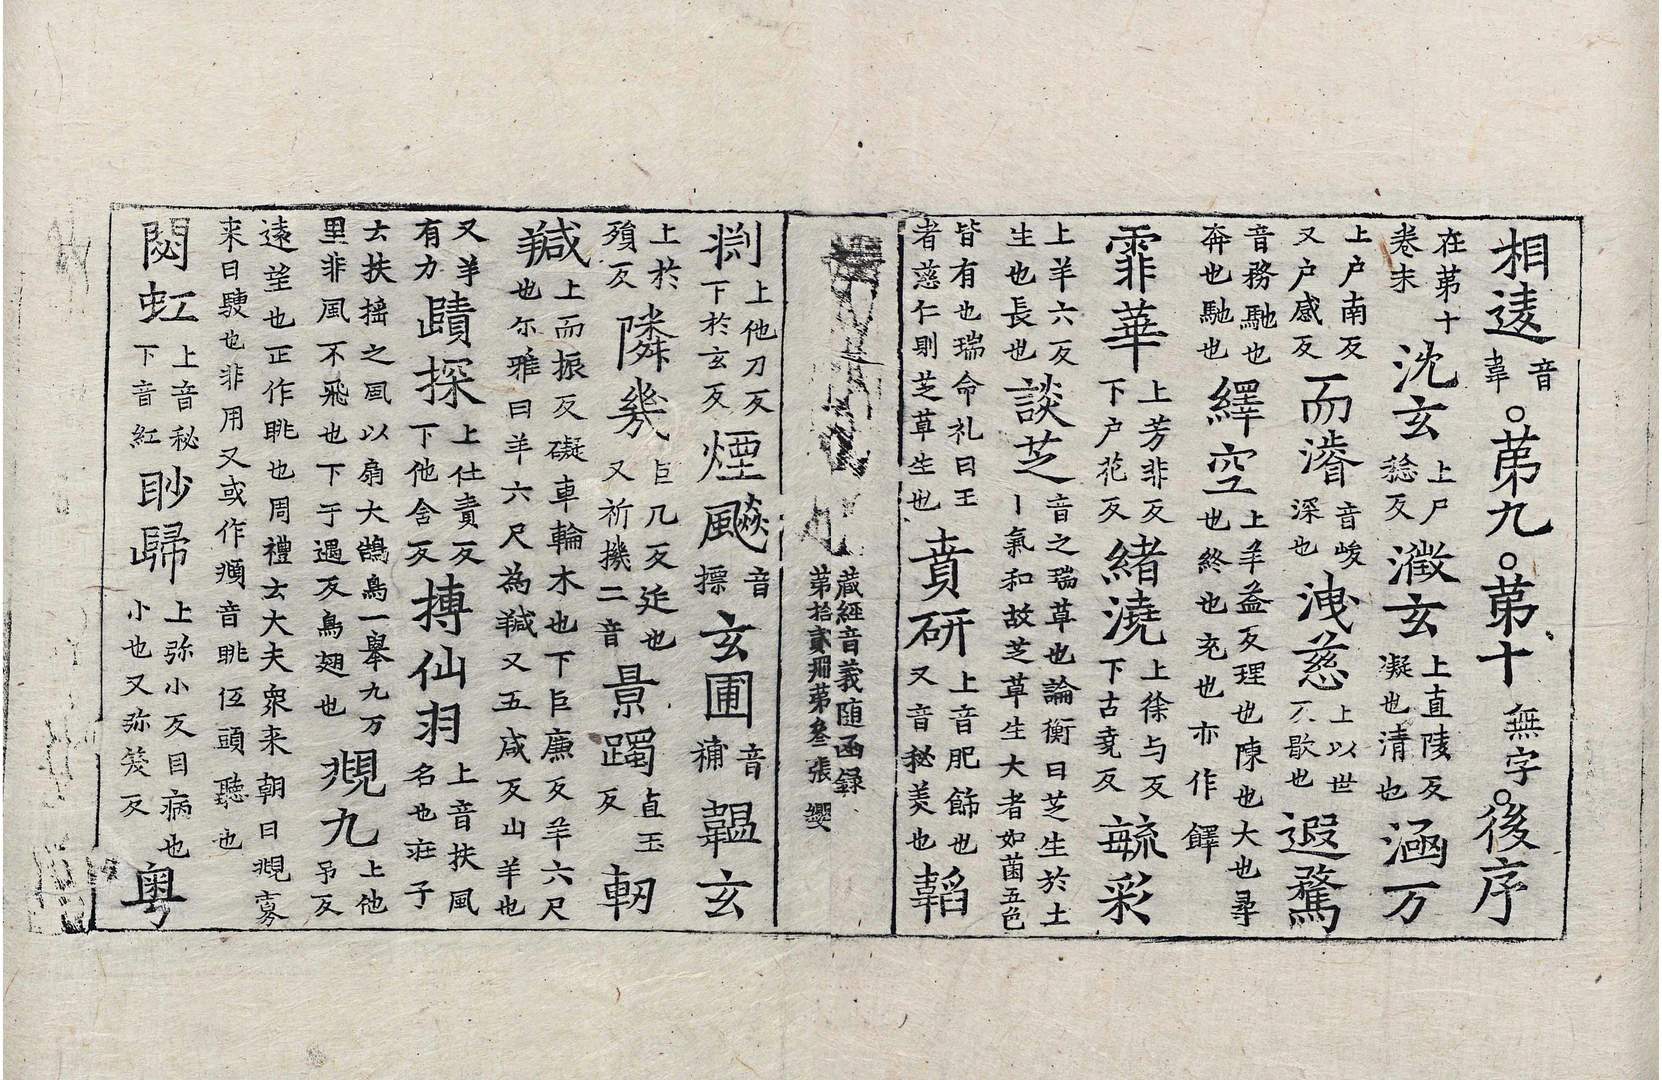 相逺音韋。苐九。苐十無字。後序
在苐十卷末沈玄上尸稔反瀓玄上直陵反凝也清也涵万
上户南反又户感反而濬音峻深也洩慈上以世反歇也遐騖
音務馳也奔也馳也繹空上羊益反理也陳也大也尋也終也充也亦作
霏華上芳非反下户花反緒澆上徐与反下古尭反毓彩
上羊六反生也長也談芝音之瑞草也論衡曰芝生於土丨氣和故芝草生大者如菌五色
皆有也瑞命礼曰王者慈仁則芝草生也賁研上音肥飾也又音秘美也韜
藏經音義随函録
第拾貳冊苐叄張 纓
上他刀反下於玄反煙飈音摽玄圃音補韞玄
上於殞反隣幾巨几反近也又祈機二音景躅直玉反軔
羬上而振反礙車輪木也下巨廉反羊六尺也尔雅曰羊六尺為羬又五咸反山羊也
又羊有力賾探上仕責反下他含反摶仙羽上音扶風名也荘子
云扶揺之風以扇大鵠鳥一舉九万里非風不飛也下于遇反鳥翅也覜九上他吊反
逺望也正作眺也周禮云大夫衆来朝曰覜寡来曰也非用又或作頫音眺伍頭聽也
閟虹上音秘下音紅眇歸上弥小反目病也小也又弥笺反粤